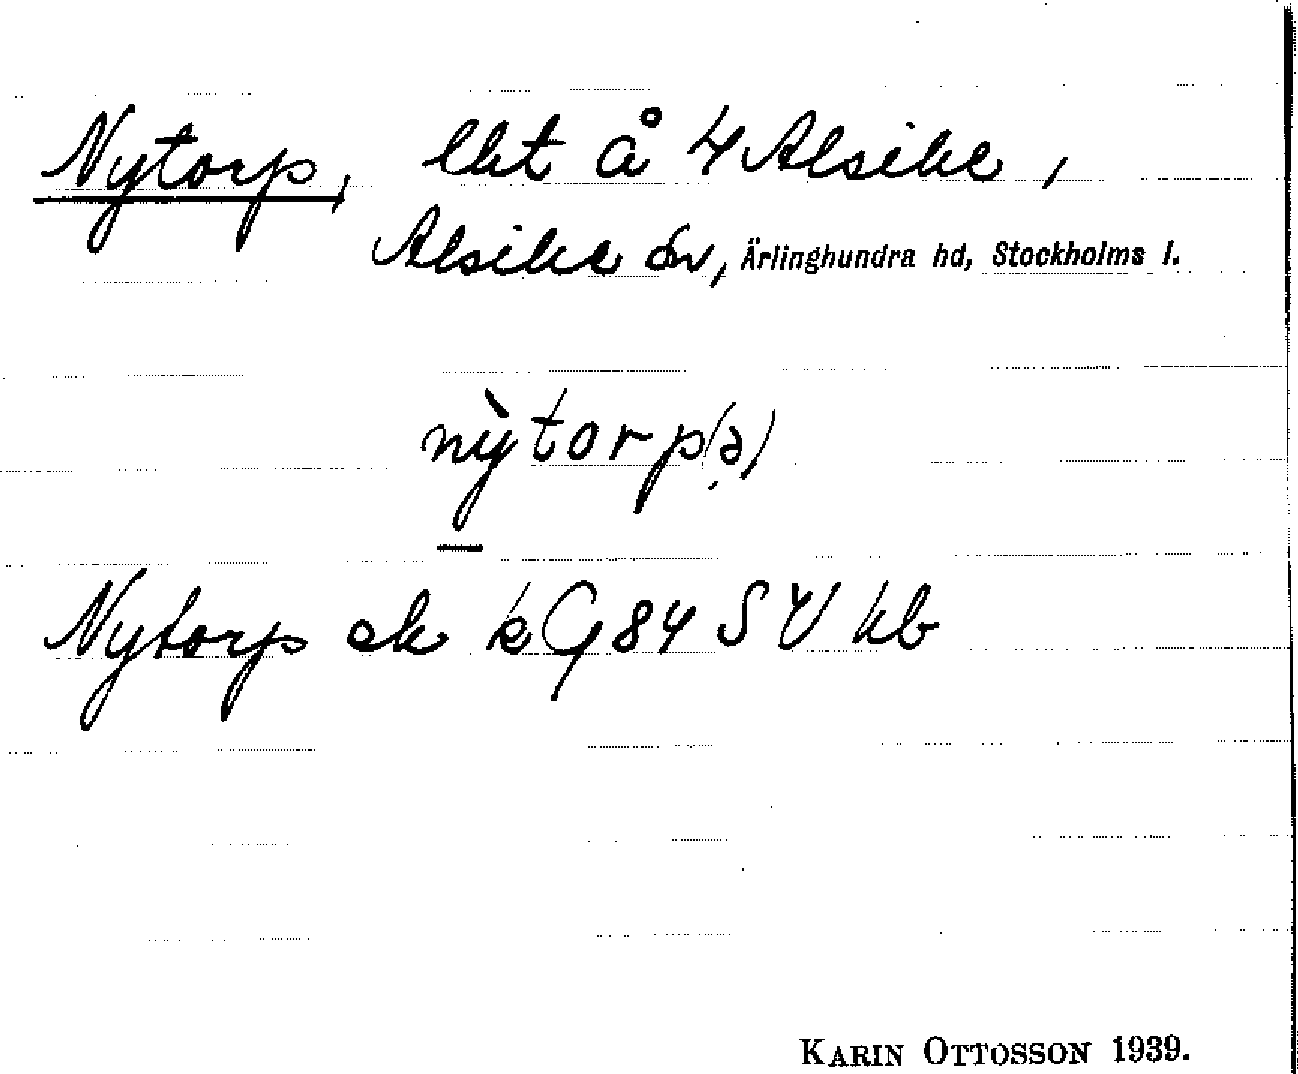 Nytorp, lht å 4 Alsike,
Alsike sn, Ärlinghundra hd, Stockholms l.
nỳtorp(ə)
Nytorp ek kG84SV kb
KARIN OTTOSSON 1939.